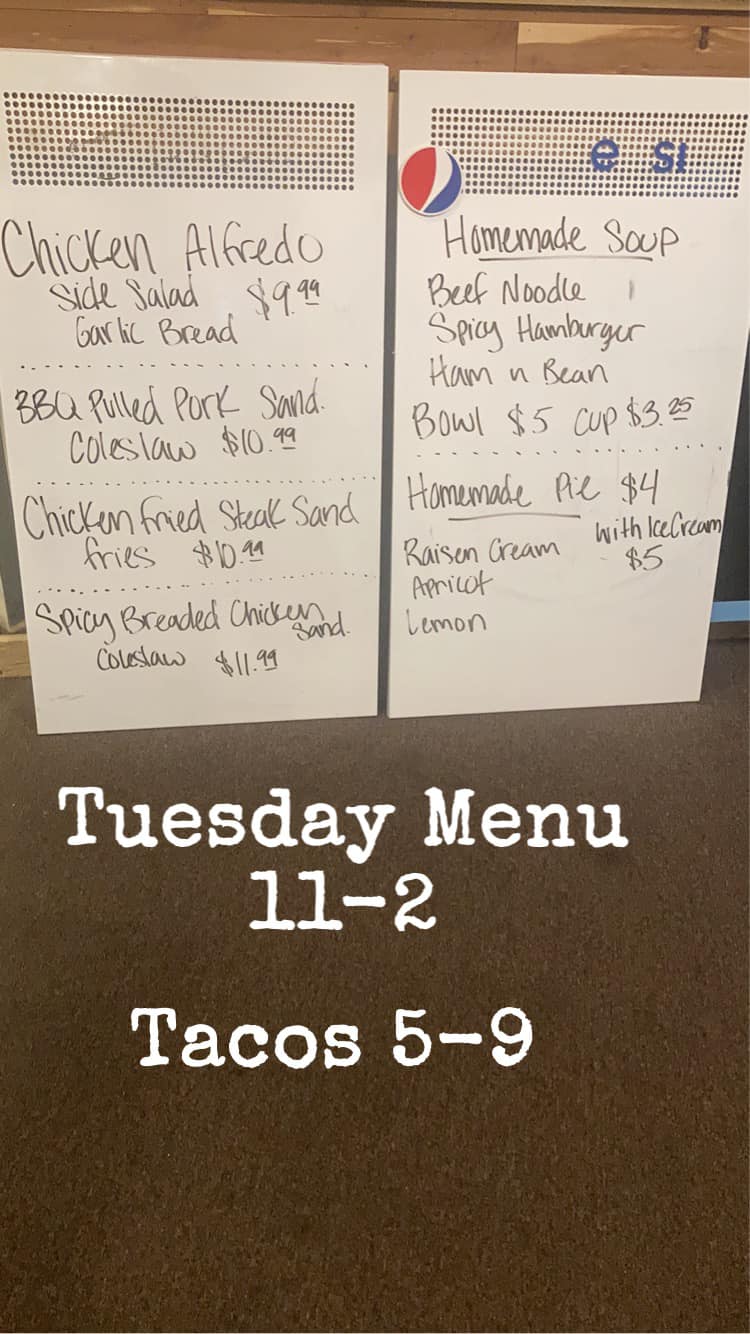 Chicken Alfredo
Side Salad $9.99
Garlic Bread
BBQ Pulled Pork Sand.
Coleslaw $10.99
Chicken fried Steak Sand
fries $10.99
Spicy Breaded Chicken
Sand.
Coleslaw $11.99
e si
Homemade Soup
Beef Noodle
Spicy Hamburger
Ham n Bean
Bowl $5 Cup $3.25
Homemade Pie $4
With Ice Cream
$5
Raisen Cream
Apricot
Lemon
Tuesday Menu
11-2
Tacos 5-9